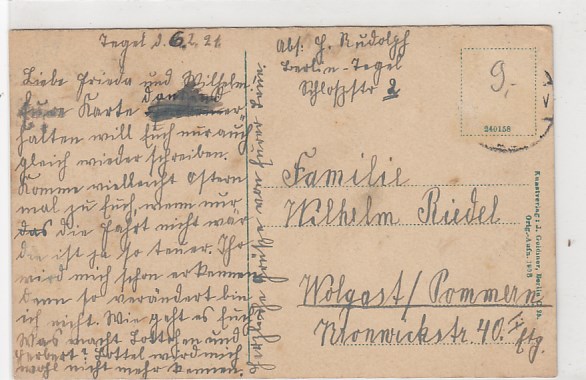 Tegel d. 6.2.21
Liebe Frieda und Wilhelm.
Eure Karte dankend er-
halten will Euch nur auch
gleich wieder schreiben.
Komme vielleicht Ostern
mal zu Euch, wenn nur
das die Fahrt nicht wär
die ist ja so teuer. Ihr
wird mich schon erkennen
denn so verändert bin
ich nicht. Wie geht es Euch
Was macht Lottchen und
Herbert? Lottel wird mich
wohl nicht mehr kennen.
Grüße
Abs: H. Rudolph
Berlin-Tegel
Schloßstr 2
9.
240158
Familie
Wilhelm Riedel
Wolgast/Pommern
Kronwickstr 40. II Etg.
Kunstverlag: J. Goldiner, Berlin C. 25.
Orig.-Aufn. 1938